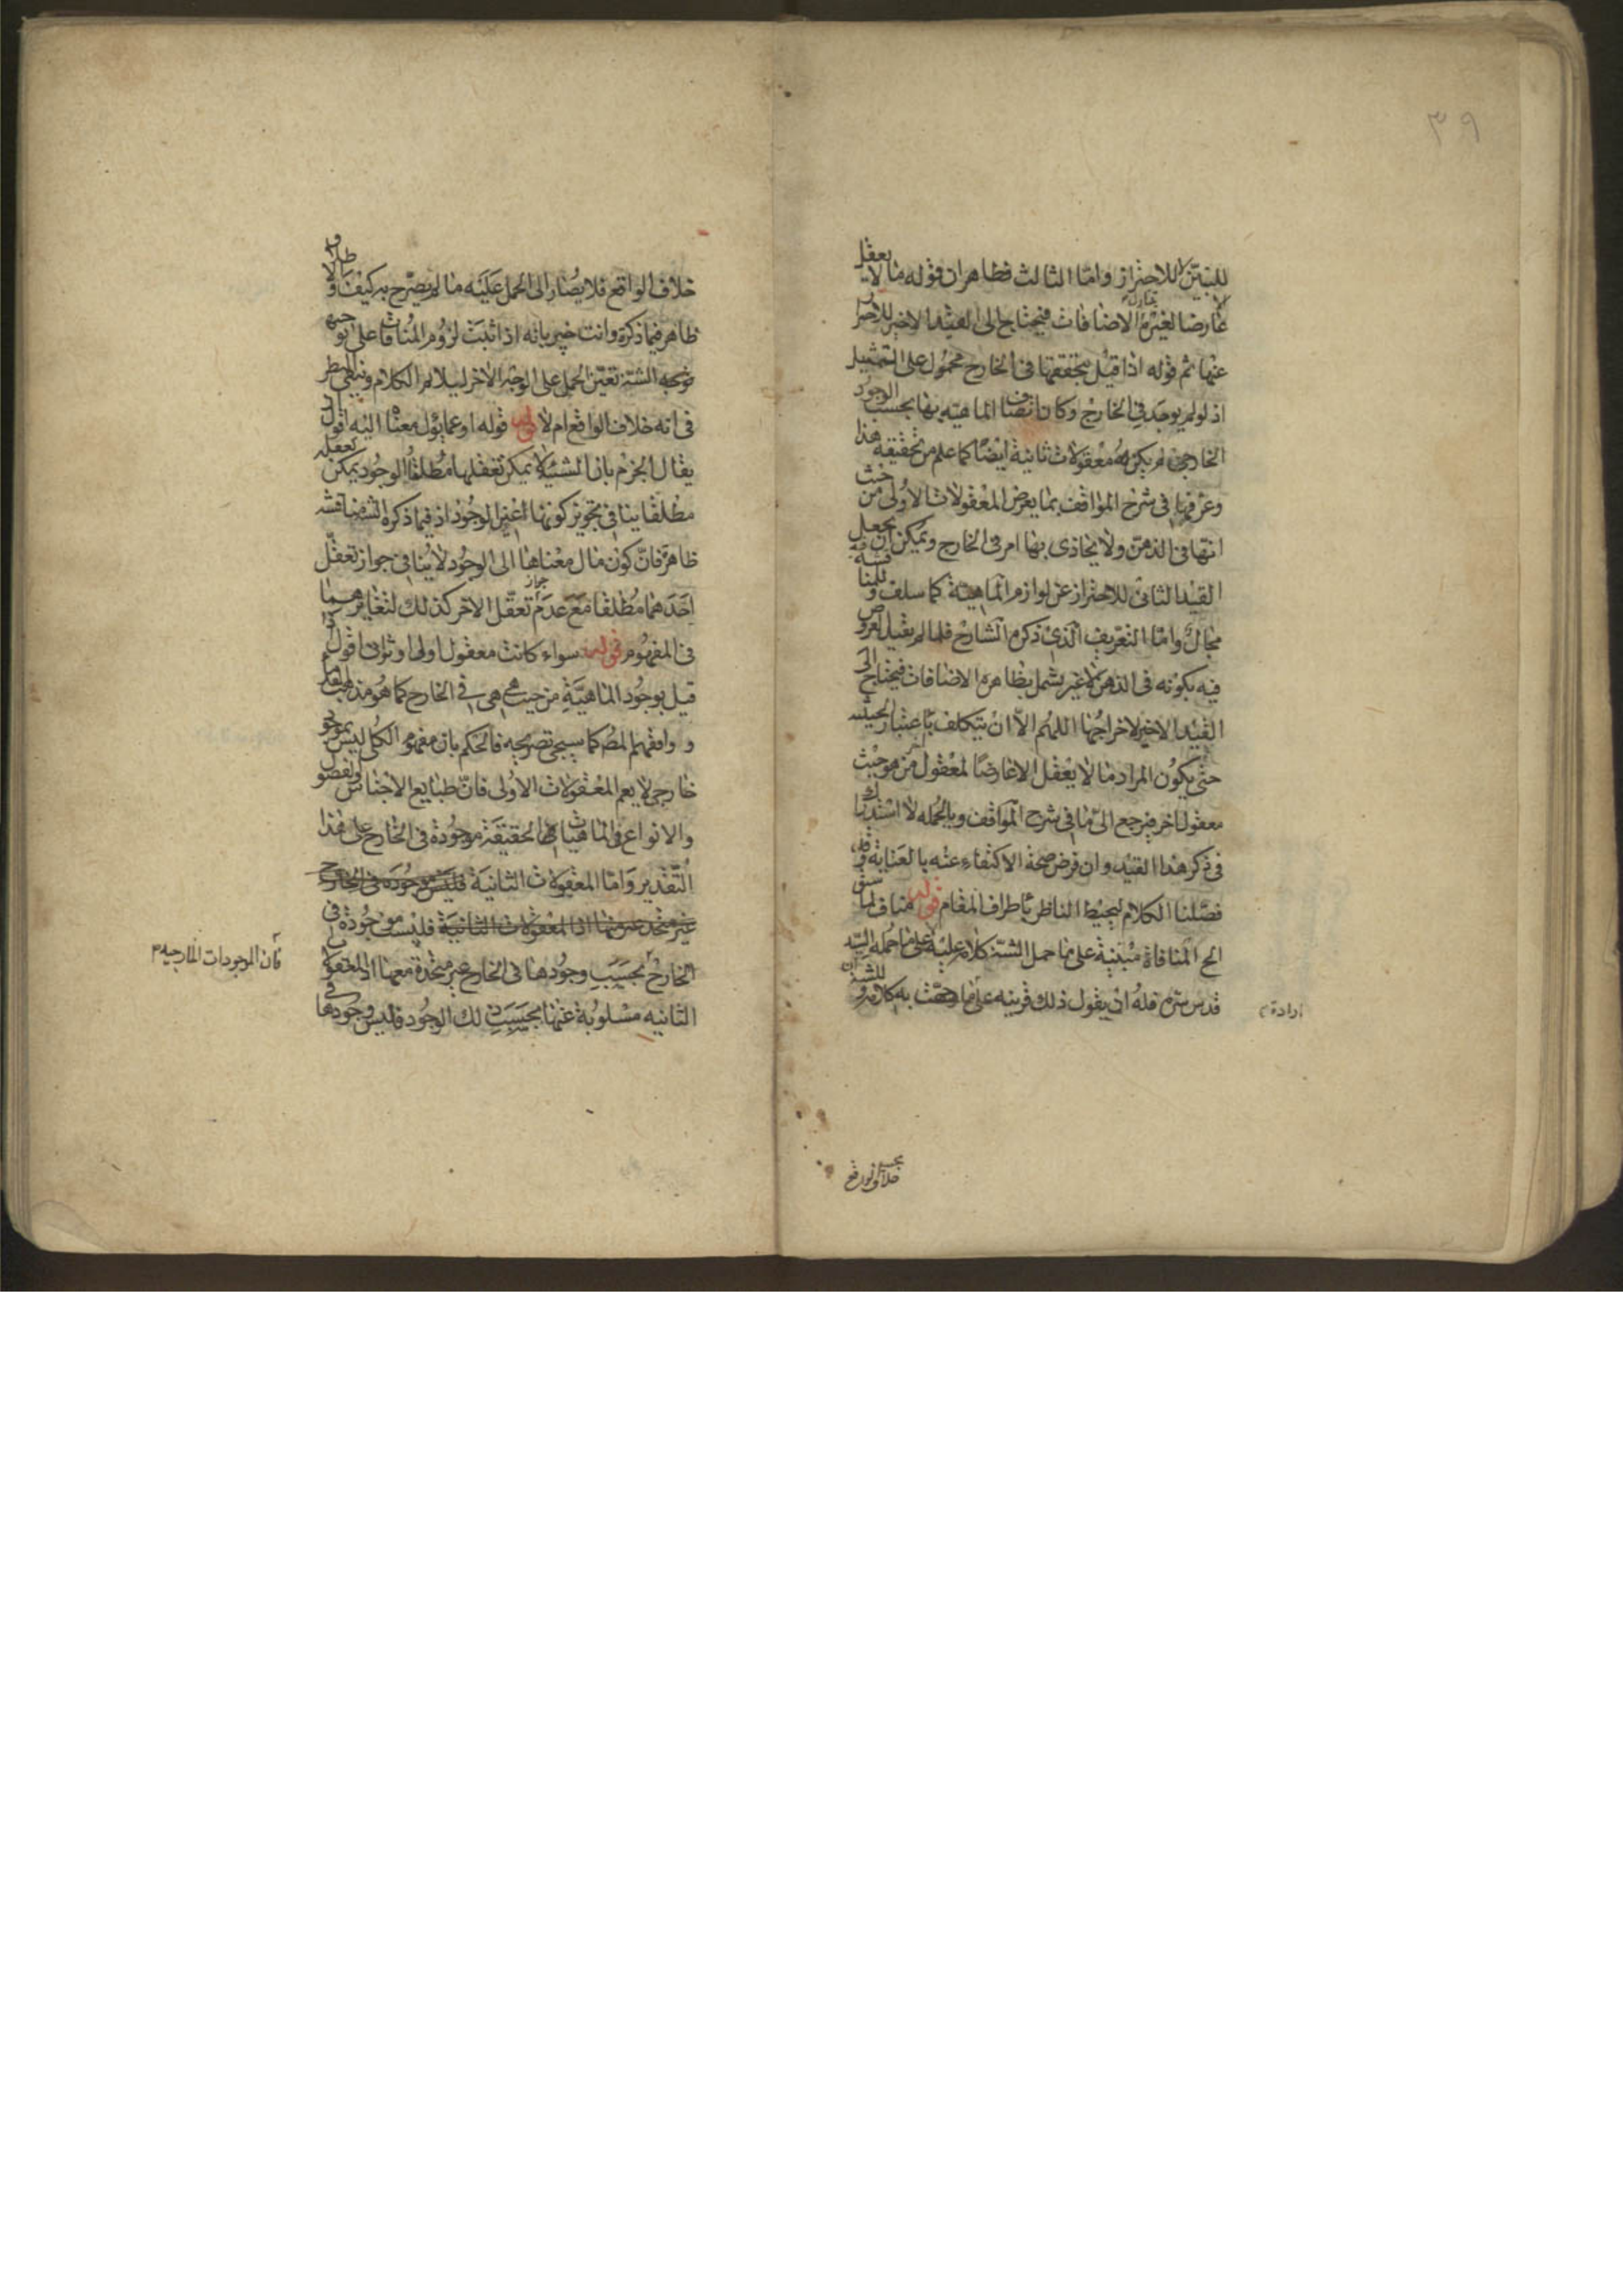 ٣٩
للتبيين لا للاحتراز واما الثالث فظاهر ان قوله ما لا يعقل الا
عارضا لغيره الاضافات فيحتاج الى القيد الاخير للاحتراز
عنها ثم قوله اذا قيل بتحققها في الخارج محمول على التمثيل
اذ لو لم يوجد في الخارج وكان اتصاف الماهية بها بحسب الوجود
الخارجي لم يكن معقولات ثانية ايضا كما علم من تحقيقه هذا
وعرفها في شرح المواقف بما يعرض المعقولات الاولى من حيث
انها في الذهن ولا يحاذى بها امر في الخارج ويمكن ان يجعل
القيد الثاني للاحتراز عن لوازم الماهية كما سلف وللمناقشة فيه
مجال واما التعريف الذي ذكره الشارح فلما لم يقيد العروض
فيه بكونه في الذهن لا غير يشمل بظاهره الاضافات فيحتاج الى
القيد الاخير لاخراجها اللهم الا ان يتكلف باعتبار الحيثية
حتى يكون المراد ما لا يعقل الا عارضا لمعقول اخر من حيث هو
معقول اخر فيرجع الى ما في شرح المواقف وبالجملة لا استدراك
في ذكر هذا القيد وان فرض صحة الاكتفاء عنه بالعناية وقد
فصلنا الكلام ليحيط الناظر باطراف المقام قوله مناف لما سبق
الخ المنافاة مبتنية على ما حمل الشه كلامه عليه لا على ما حمله السيد
قدس سره فله ان يقول ذلك قرينة على ما حملت به كلامه
ارادة
خلاف الواقع
خلاف الواقع فلا يصار الى الحمل عليه ما لم يصرح به كيف ولا
ظاهر فيما ذكره وانت خبير بانه اذا ثبت لزوم المنافاة على توجيه
الشه تعين الحمل على الوجه الاخر ليلائم الكلام ويبقى النظر
في انه خلاف الواقع ام لا قوله قوله او عما يؤل معناه اليه اقول
يقال الجزم بان الشيئية لا يمكن تعقلها مطلقا والوجود يمكن تعقله
مطلقا ينافي تجويز كونها غير الوجود اذ فيما ذكره الشه مناقشة
ظاهرة فان كون مال معناها الى الوجود لا ينافي جواز تعقل
احدهما مطلقا مع عدم جواز تعقل الاخر كذلك لتغايرهما
في المفهوم قوله سواء كانت معقول اولى او ثواني اقول اذا
قيل بوجود الماهية من حيث هي هي في الخارج كما هو مذهب
ووافقهم المص كما سيجئ تصريحه فالحكم بان مفهوم الكلي ليس بموجود
خارجي لا يعم المعقولات الاولى فان طبايع الاجناس والفصول
والانواع في الماهيات الحقيقية موجودة في الخارج على هذا
التقدير واما المعقولات الثانية فليس موجودة في الخارج
غير متحد معها اذا المعقولات الثانية فليست موجودة في
الخارج بحسب وجودها في الخارج غير متحدة معها اذ المعقولات
الثانيه مسلوبة عنها بحسب ذلك الوجود فليس وجودها في
فان الموجودات الخارجيه